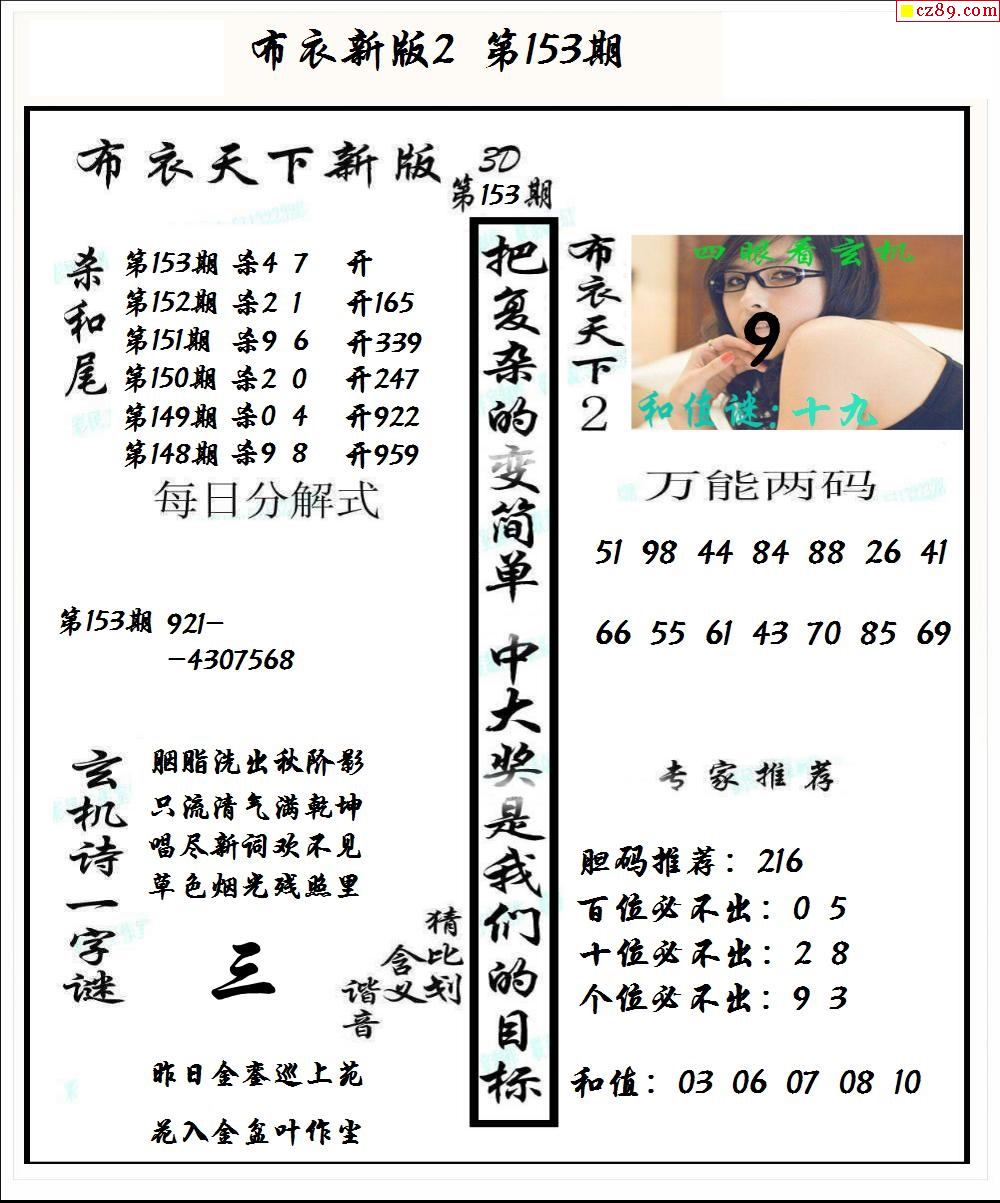 cz89.com
布衣新版2 第153期
布衣天下新版
3D
第153期
杀和尾
第153期 杀4 7 开
第152期 杀2 1 开165
第151期 杀9 6 开339
第150期 杀2 0 开247
第149期 杀0 4 开922
第148期 杀9 8 开959
每日分解式
第153期 921-
-4307568
玄机诗一字谜
胭脂洗出秋阶影
只流清气满乾坤
唱尽新词欢不见
草色烟光残照里
三
猜比划
含义
谐音
昨日金銮巡上苑
花入金盆叶作尘
把复杂的变简单 中大奖是我们的目标
布衣天下2
四眼看玄机
9
和值谜:十九
万能两码
51 98 44 84 88 26 41
66 55 61 43 70 85 69
专家推荐
胆码推荐：216
百位必不出：0 5
十位必不出：2 8
个位必不出：9 3
和值：03 06 07 08 10